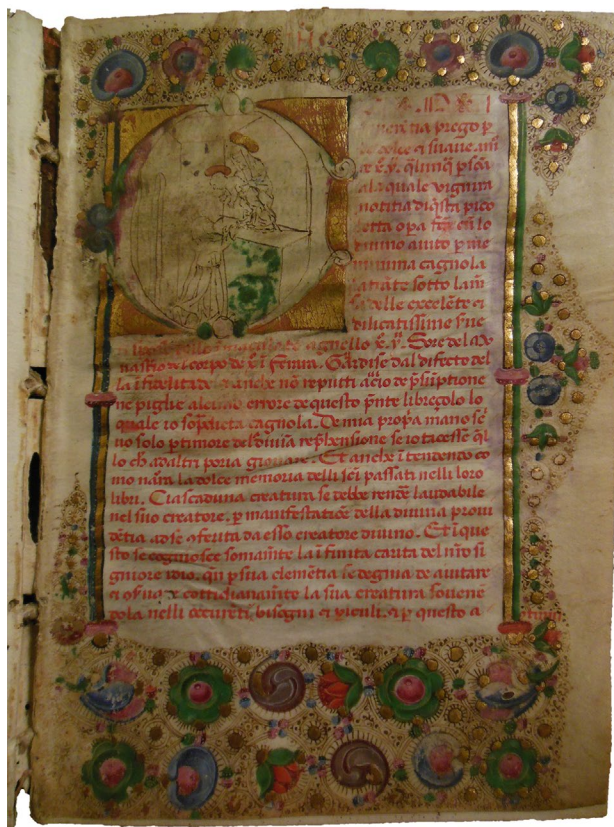 prego p
dolce ci suaue
x̄. y̅. q̄lūq̄ p̄sōa
ala quale vignira
notitia diq̄sta pico
lotta op̄a fc̄a cū lo
diuino aiuto p̄ me
minima cagnola
latrāte sotto lam̄
sa delle excelēte ci
dilicatissime s̄rue
agnello x̄. y̅. Sore del Mo
nastīo del corpo de x̄. ī Ga̅rdise dal difecto del
la ī fidelita de anche nō reputi acīo de p̄sūptione
ne piglie alcuno errore de questo p̄nte libreçolo lo
quale io sop̄dicta cagnola. De mia prop̄a mano
no solo p̄ timore del diuīa rep̄hensione se io tacesse q̄l
lo ch̄ adaltri poria giouare. Et anche ītendendo co
mo nūra la dolce memoria delli sc̄i passati nelli loro
libri. Ciascaduna creatura se debbe rendē laudabile
nel suo creatore. p̄ manifestatiōe della diuina proui
dētia adse ꝯferita da esso creatore diuino. Et ī que
sto se cognosce somam̄te la ī finita carita del nr̄o si
gniore idio. q̄n p̄ sua clemētia se degnia de aiutare
ci ꝯfirma cottidianam̄te la sua creatura souene
dola nelli occurēti bisogni ci piculi. ci p̄ questo a